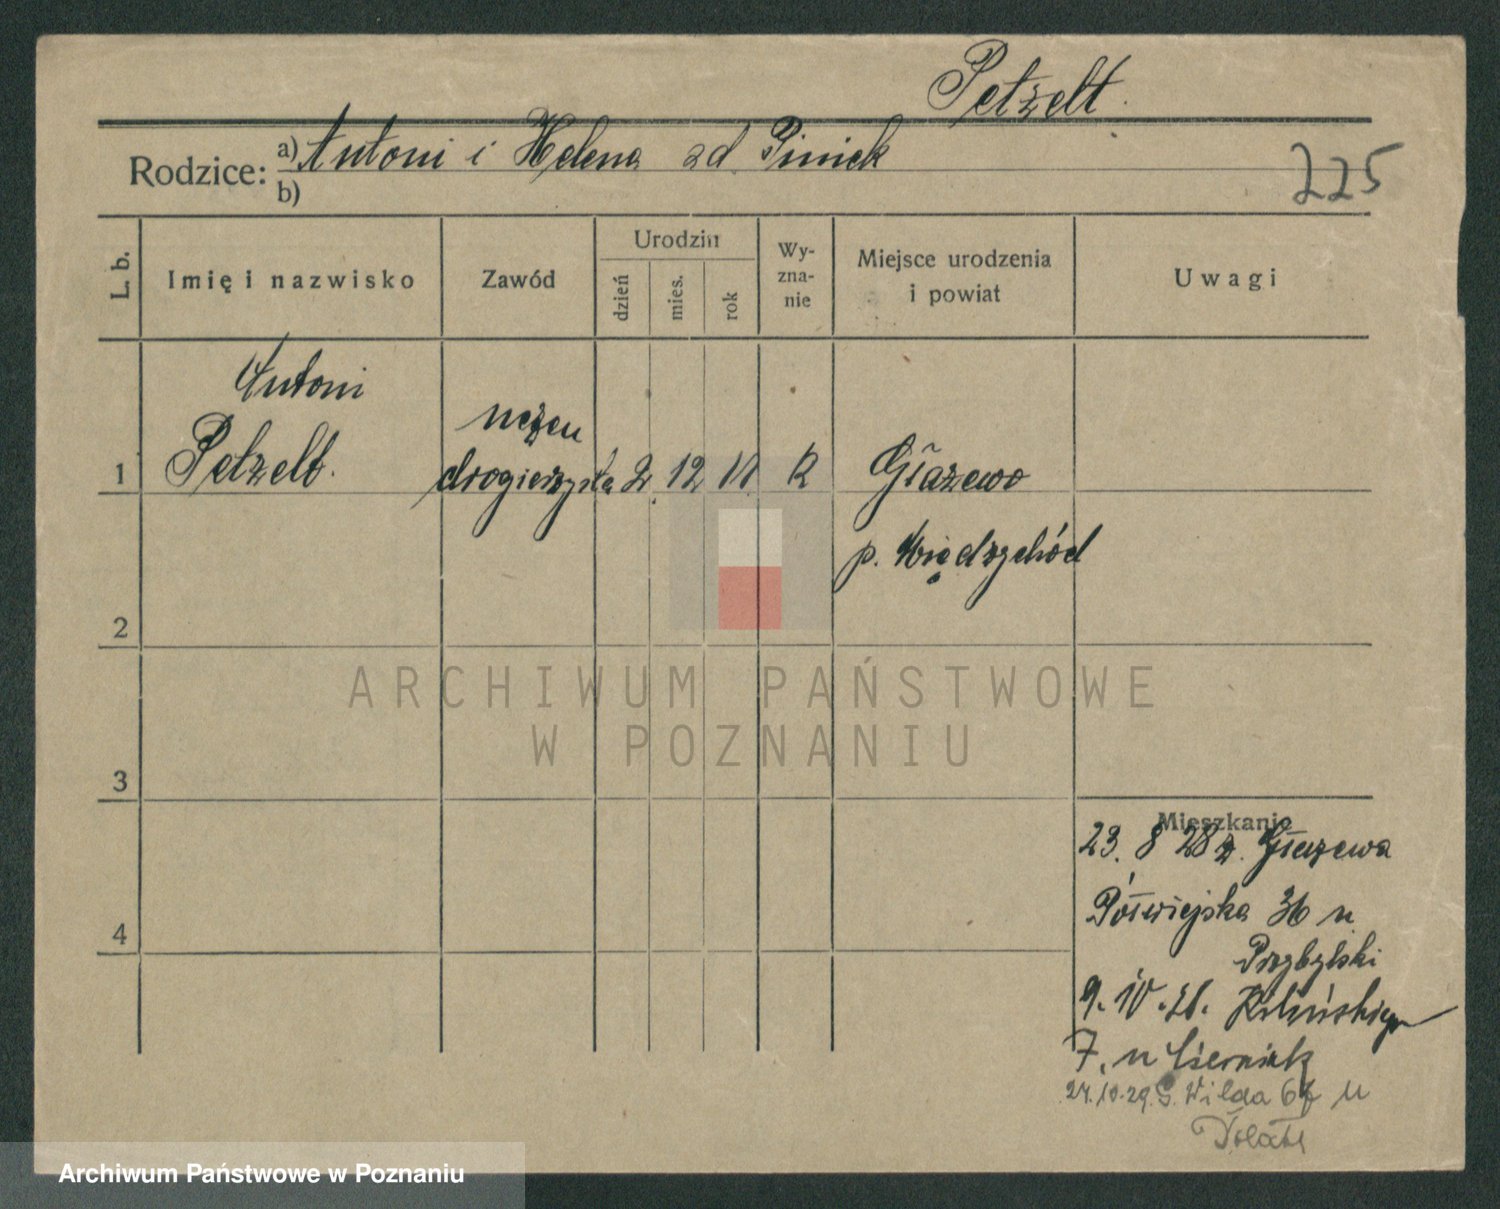 Petzelt.
Rodzice: a) Antoni i Helena zd. Piniek
b)
225
L. b.
Imię i nazwisko
Zawód
Urodzin
dzień
mies.
rok
Wy-
zna-
nie
Miejsce urodzenia
i powiat
Uwagi
Antoni
Petzelt.
uczeń
drogierzysta
1
2. 12 11. R
Głażewo
p. Międzychód
2
3
4
ARCHIWUM PAŃSTWOWE
W POZNANIU
Mieszkanie
23. 8 28 z. Głażewa
Półwiejska 36 u
Przybylski
9. IV. Kilińskiego
7. u
24.10.29. G. Wilda 67 u
Archiwum Państwowe w Poznaniu